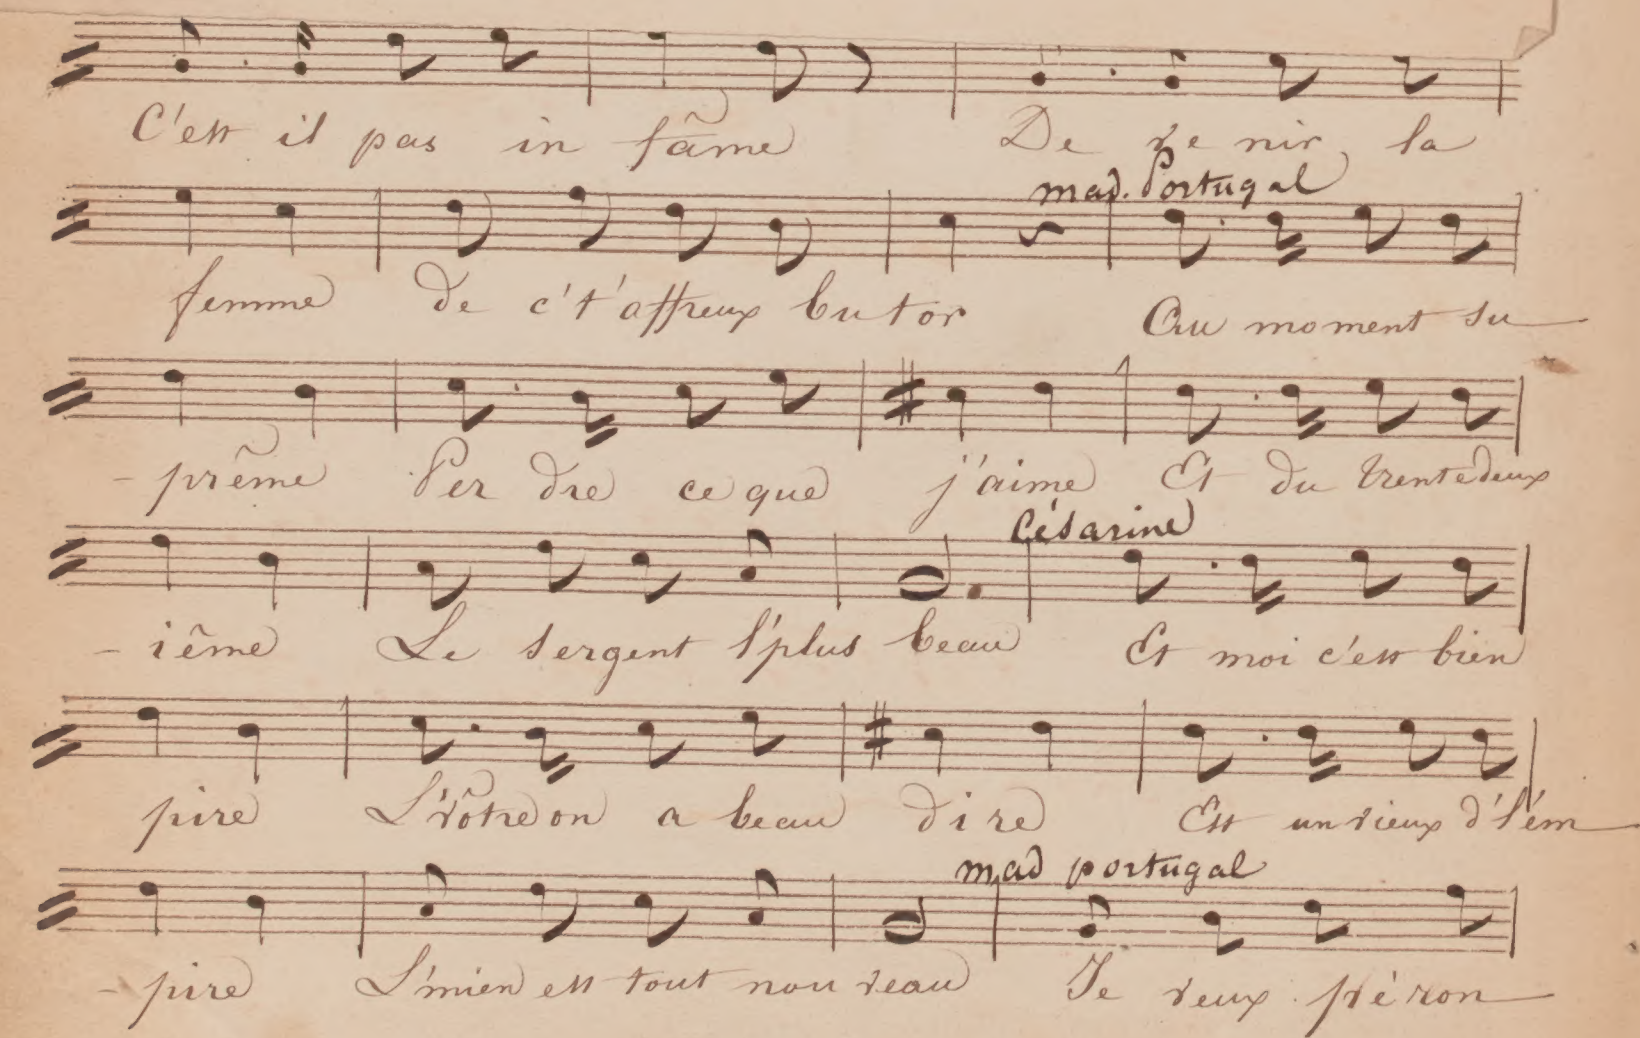 C'est il pas in fâme De ve nir la
mad. Portugal
femme de c't'affreux bu tor Au moment su
- prême Per dre ce que j'aime Et du trente deux
Césarine
- ième Le sergent l'plus beau Et moi c'est bien
pire L'vôtre on a beau dire Est un vieux d'l'em
mad portugal
- pire L'mien est tout nou veau Je veux Péron